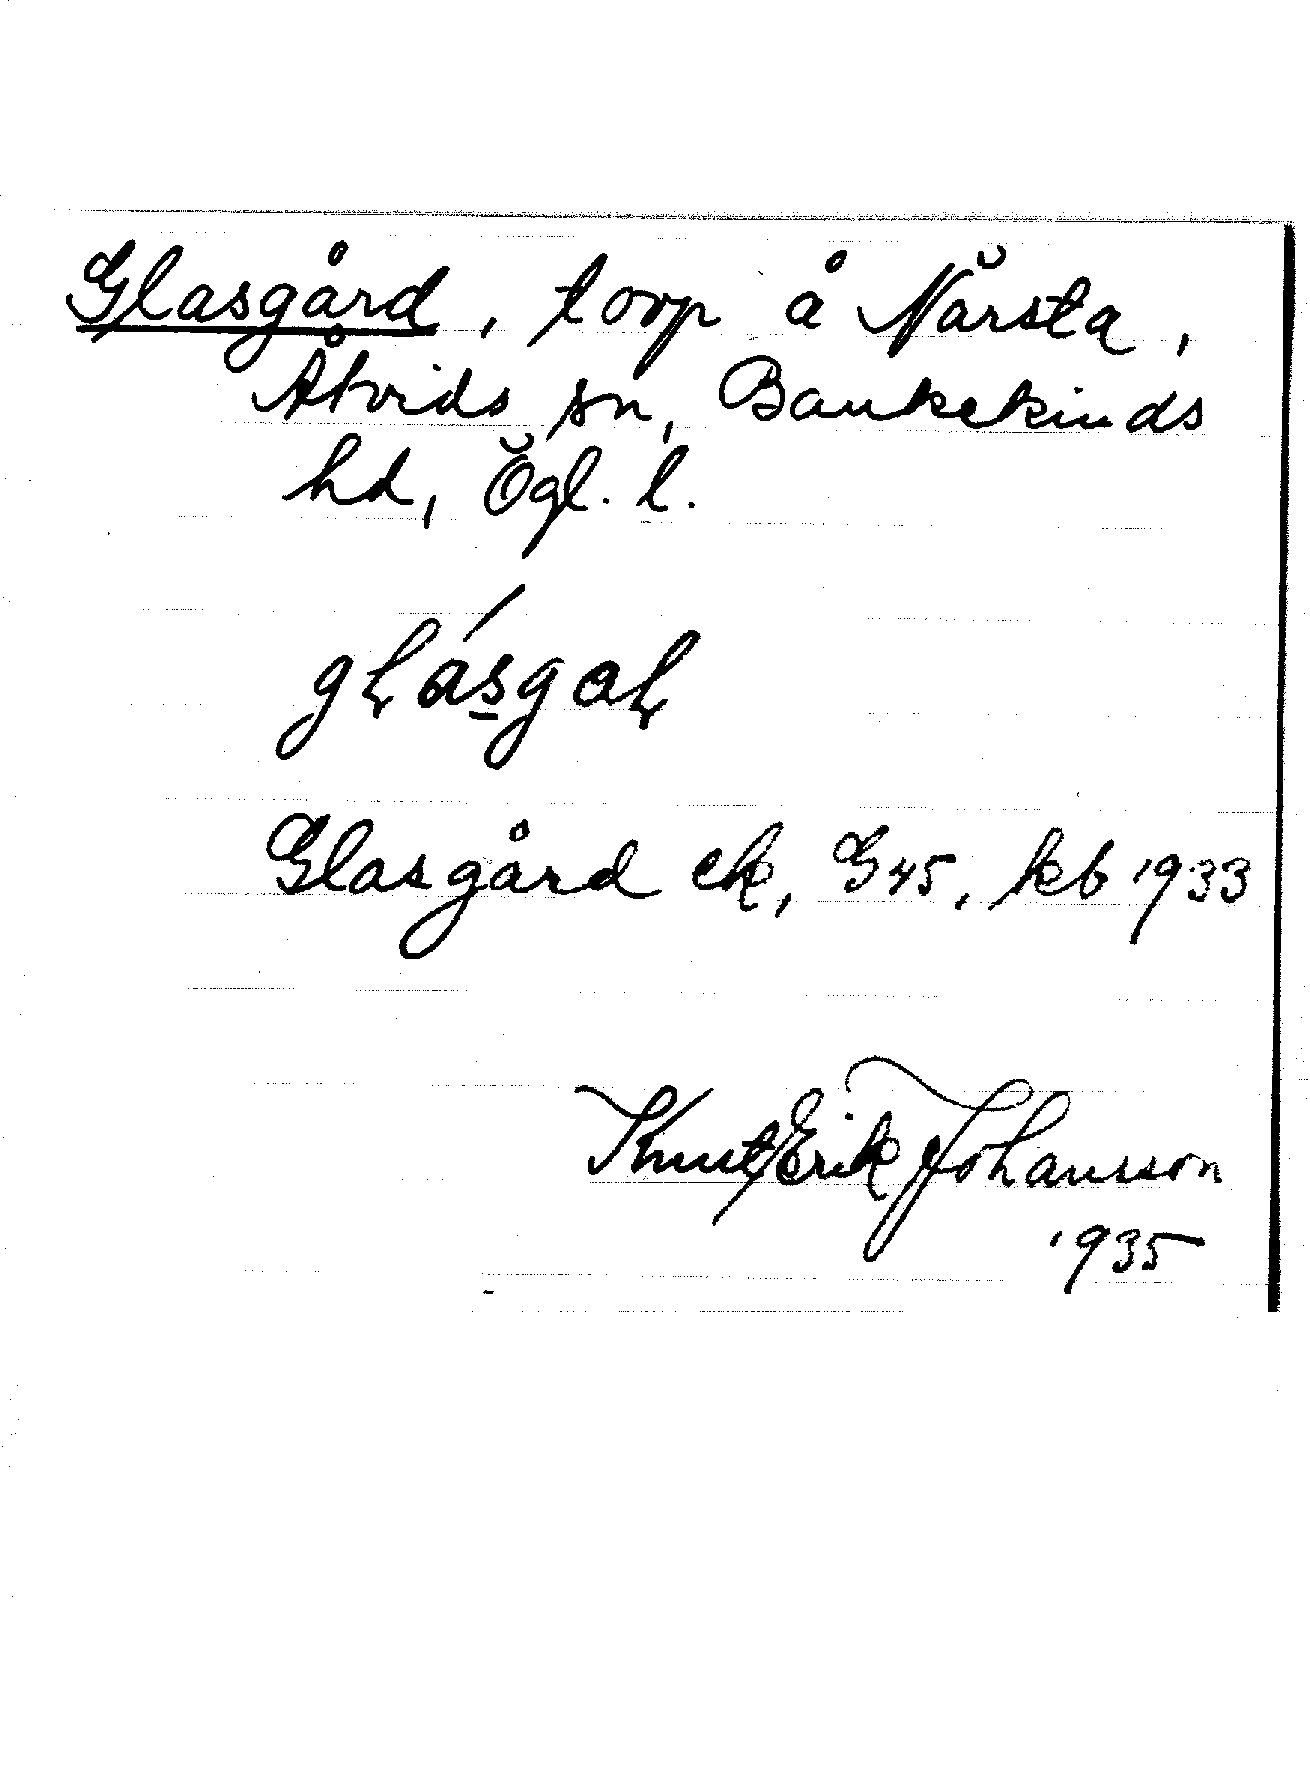 Glasgård, torp å Närsta,
Åtvids sn, Bankekinds
hd, Ögl. l.
Glasgård ek, G45, kb 1933
Knut Erik Johansson
1935